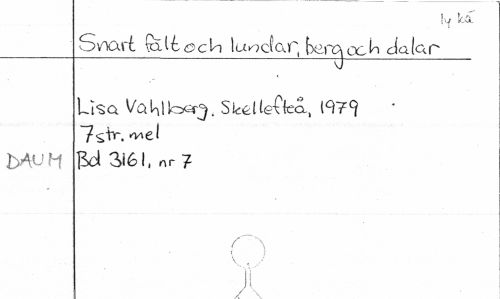 ly kä
Snart fält och lundar, berg och dalar
Lisa Vahlberg. Skellefteå, 1979
7 str. mel
DAUM Bd 3161, nr 7